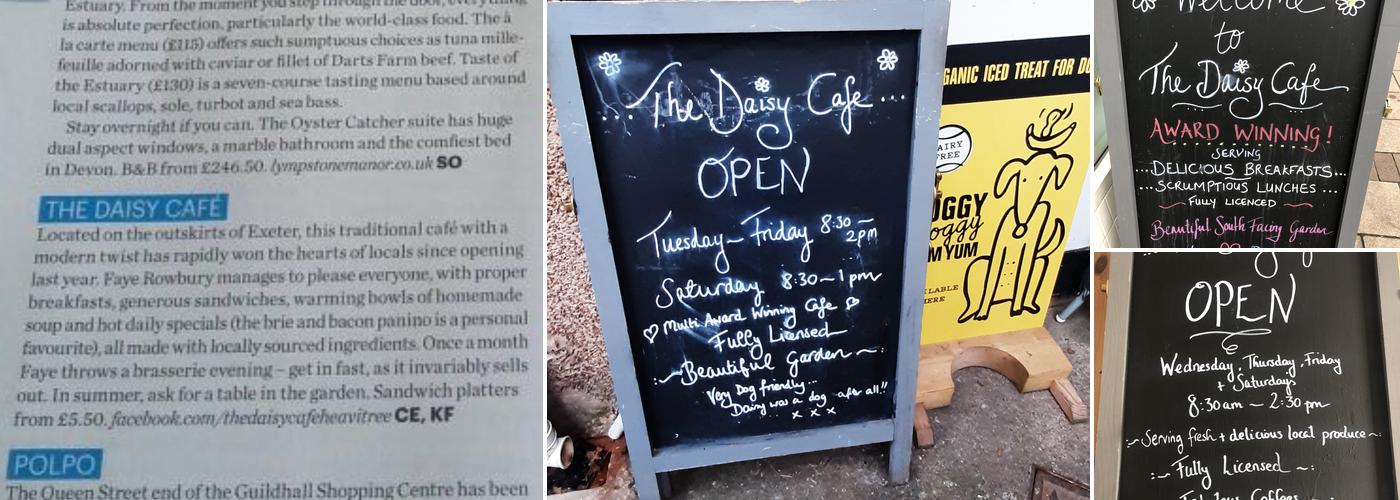 Estuary. From the moment you step through the door, everything
is absolute perfection, particularly the world-class food. The à
la carte menu (£115) offers such sumptuous choices as tuna mille-
feuille adorned with caviar or fillet of Darts Farm beef. Taste of
the Estuary (£130) is a seven-course tasting menu based around
local scallops, sole, turbot and sea bass.
Stay overnight if you can. The Oyster Catcher suite has huge
dual aspect windows, a marble bathroom and the comfiest bed
in Devon. B&B from £246.50. lympstonemanor.co.uk SO
THE DAISY CAFÉ
Located on the outskirts of Exeter, this traditional café with a
modern twist has rapidly won the hearts of locals since opening
last year. Faye Rowbury manages to please everyone, with proper
breakfasts, generous sandwiches, warming bowls of homemade
soup and hot daily specials (the brie and bacon panino is a personal
favourite), all made with locally sourced ingredients. Once a month
Faye throws a brasserie evening – get in fast, as it invariably sells
out. In summer, ask for a table in the garden. Sandwich platters
from £5.50. facebook.com/thedaisycafeheavitree CE, KF
POLPO
The Queen Street end of the Guildhall Shopping Centre has been
... The Daisy Cafe ...
OPEN
Tuesday - Friday 8:30 - 2pm
Saturday 8:30 - 1pm
Multi Award Winning Cafe
Fully Licensed
Beautiful Garden
Very Dog friendly...
Daisy was a dog after all!!
x x x
GANIC ICED TREAT FOR DO
AIRY
FREE
OGGY
oggy
M YUM
ILABLE
HERE
Welcome
to
The Daisy Cafe
AWARD WINNING!
SERVING
...DELICIOUS BREAKFASTS...
...SCRUMPTIOUS LUNCHES...
FULLY LICENCED
Beautiful South Facing Garden
OPEN
Wednesday, Thursday, Friday
+ Saturdays
8:30am - 2:30pm
Serving fresh + delicious local produce
Fully Licensed
Fabulous Coffees